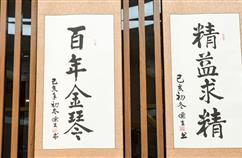 百年金琴
己亥年初冬
精益求精
己亥初冬